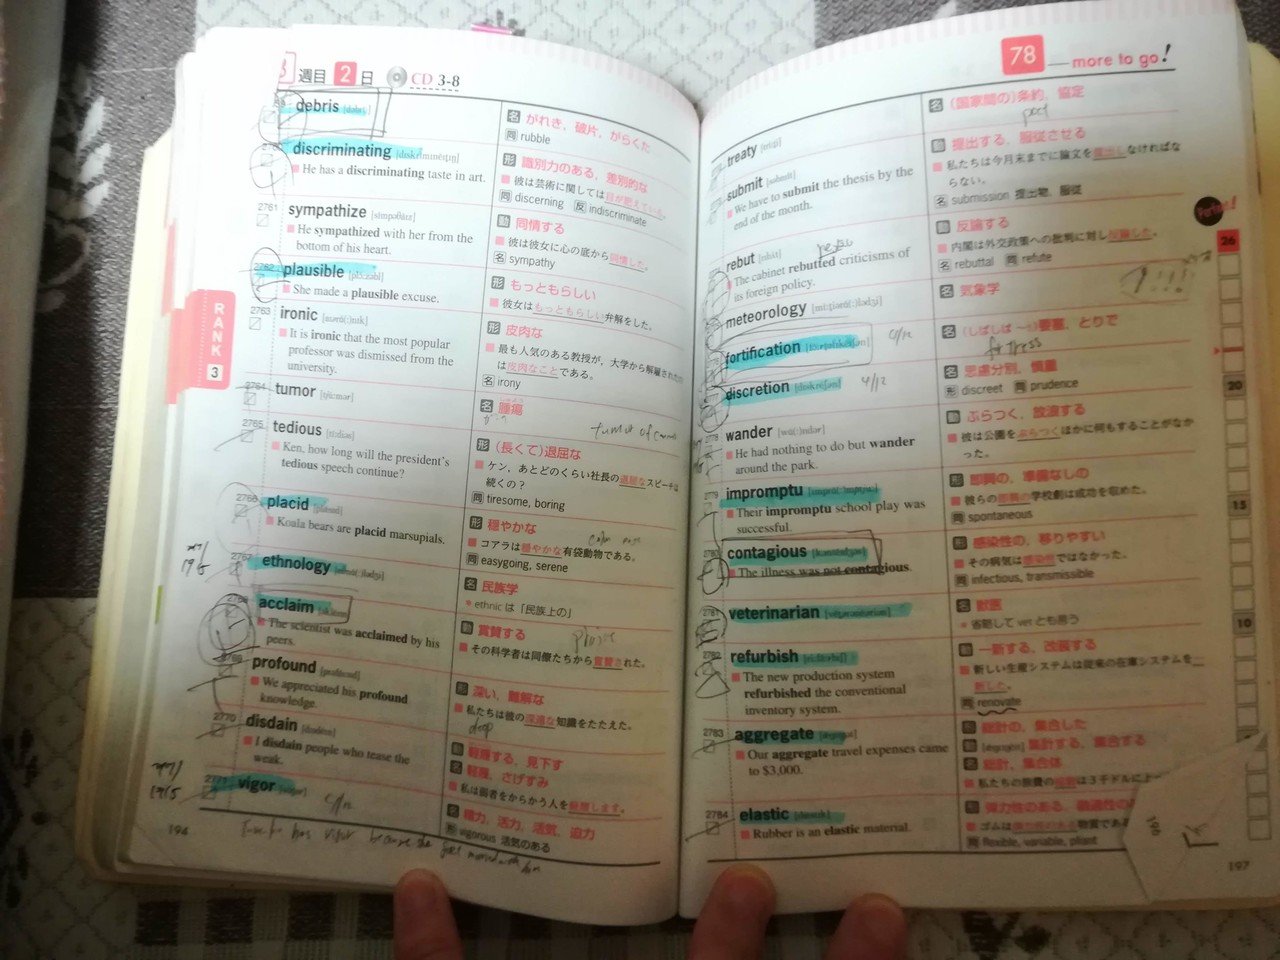 週目 2 日 CD 3-8
debris
名 がれき，破片，がらくた
同 rubble
discriminating
He has a discriminating taste in art.
形 識別力のある，差別的な
彼は芸術に関しては目が肥えている。
同 discerning 反 indiscriminate
2761
sympathize [símpəθàɪz]
He sympathized with her from the
bottom of his heart.
動 同情する
彼は彼女に心の底から同情した。
名 sympathy
2762
plausible
She made a plausible excuse.
形 もっともらしい
彼女はもっともらしい弁解をした。
2763
ironic
It is ironic that the most popular
professor was dismissed from the
university.
形 皮肉な
最も人気のある教授が，大学から解雇されたの
は皮肉なことである。
名 irony
2764
tumor
名 腫瘍
tumor of
2765
tedious
Ken, how long will the president's
tedious speech continue?
形 (長くて)退屈な
ケン，あとどのくらい社長の退屈なスピーチは
続くの？
同 tiresome, boring
2766
placid
Koala bears are placid marsupials.
形 穏やかな
コアラは穏やかな有袋動物である。
同 easygoing, serene
2767
ethnology
名 民族学
* ethnic は「民族上の」
2768
acclaim
The scientist was acclaimed by his
peers.
動 賞賛する
praise
その科学者は同僚たちから賞賛された。
2769
profound
We appreciated his profound
knowledge.
形 深い，難解な
私たちは彼の深遠な知識をたたえた。
deep
2770
disdain
I disdain people who tease the
weak.
動 軽蔑する，見下す
名 軽蔑，さげすみ
私は弱者をからかう人を軽蔑します。
2771
vigor
c/n
名 精力，活力，活気，迫力
形 vigorous 活気のある
RANK
3
194
78 more to go!
treaty
名 (国家間の)条約，協定
submit
We have to submit the thesis by the
end of the month.
動 提出する，服従させる
私たちは今月末までに論文を提出しなければな
らない。
名 submission 提出物，服従
rebut
The cabinet rebutted criticisms of
its foreign policy.
動 反論する
内閣は外交政策への批判に対し反論した。
名 rebuttal 同 refute
meteorology
名 気象学
fortification
c/n
名 (しばしば ~s)要塞，とりで
fortress
discretion
4/12
名 思慮分別，慎重
形 discreet 同 prudence
2778
wander
He had nothing to do but wander
around the park.
動 ぶらつく，放浪する
彼は公園をぶらつくほかに何もすることがなか
った。
2779
impromptu
Their impromptu school play was
successful.
形 即興の，準備なしの
彼らの即興の学校劇は成功を収めた。
同 spontaneous
2780
contagious
The illness was not contagious.
形 感染性の，移りやすい
その病気は感染性ではなかった。
同 infectious, transmissible
2781
veterinarian
名 獣医
* 省略して vet とも言う
2782
refurbish
The new production system
refurbished the conventional
inventory system.
動 一新する，改装する
新しい生産システムは従来の在庫システムを一
新した。
同 renovate
2783
aggregate
Our aggregate travel expenses came
to $3,000.
形 総計の，集合した
動 集計する，集合する
名 総計，集合体
私たちの旅費の総額は3千ドルに上
2784
elastic
Rubber is an elastic material.
形 弾力性のある，融通性の
ゴムは弾力性のある物質であ
同 flexible, variable, pliant
26
20
15
10
196
197